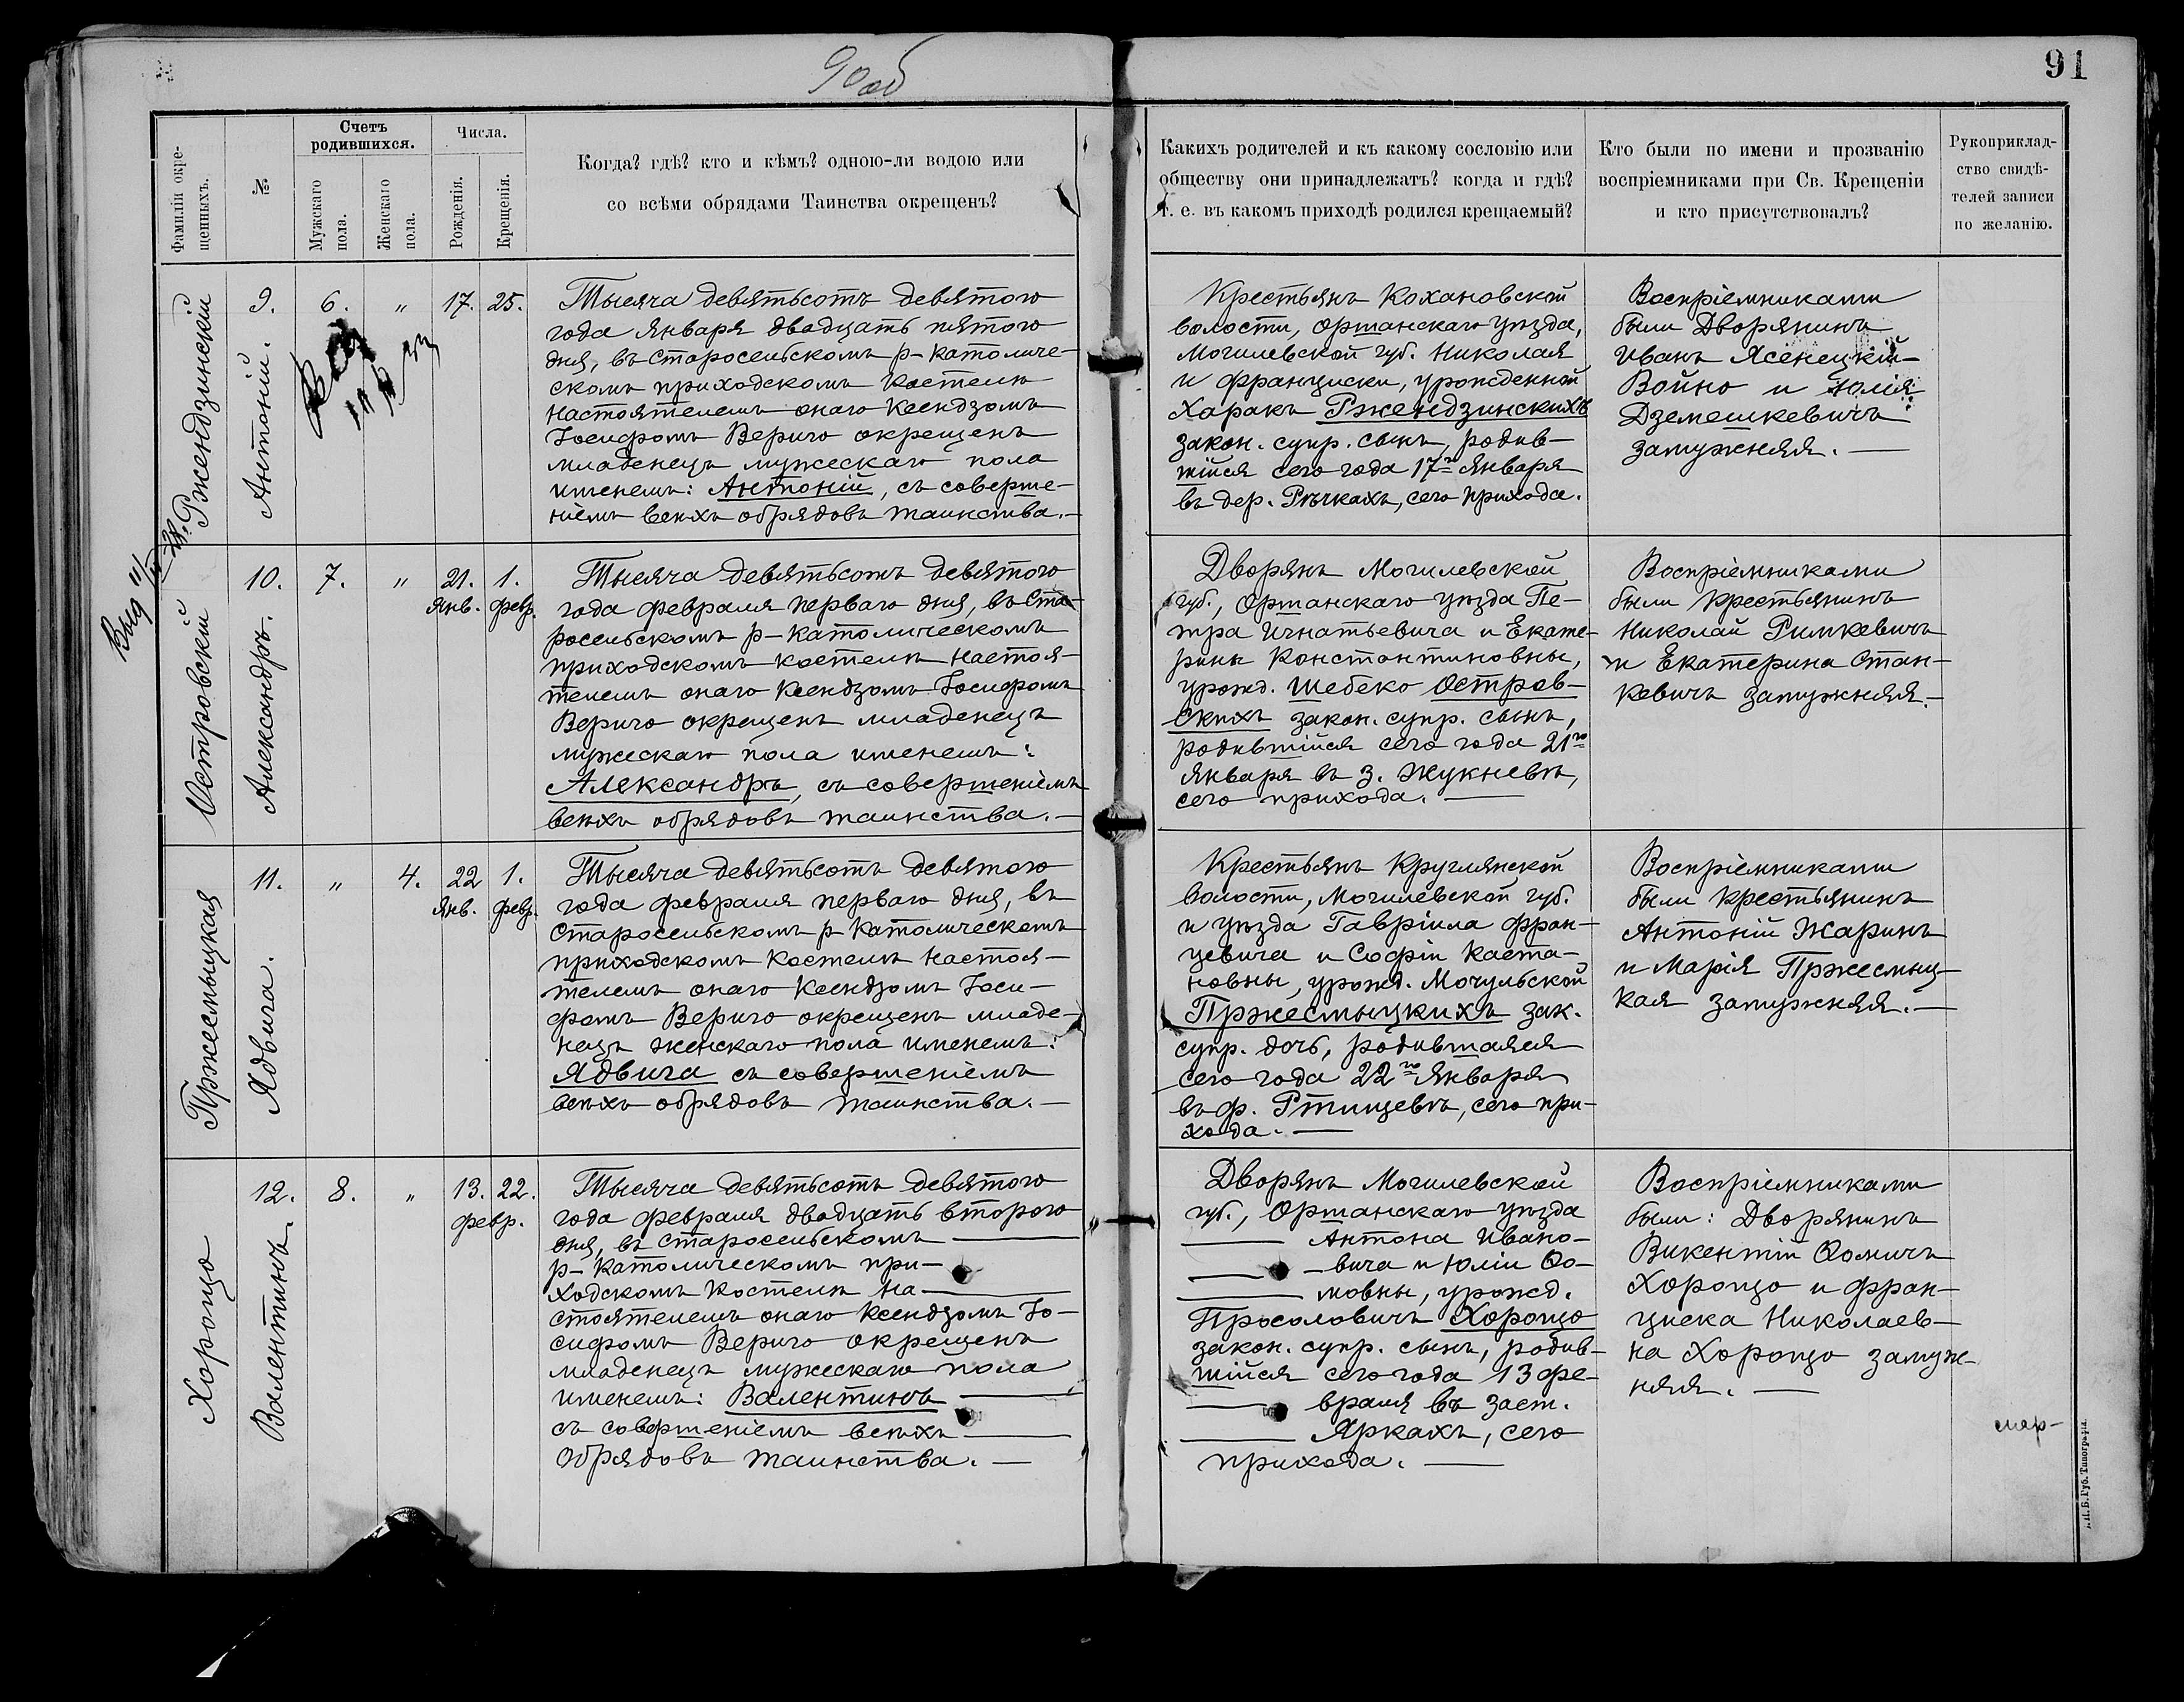 90 об
91
Фамиліи окре-
щенныхъ.
№
Счетъ
родившихся.
Мужскаго
пола.
Женскаго
пола.
Числа.
Рожденія.
Крещенія.
Когда? гдѣ? кто и кѣмъ? одною-ли водою или
со всѣми обрядами Таинства окрещенъ?
Какихъ родителей и къ какому сословію или
обществу они принадлежатъ? когда и гдѣ?
т. е. въ какомъ приходѣ родился крещаемый?
Кто были по имени и прозванію
воспріемниками при Св. Крещеніи
и кто присутствовалъ?
Рукоприклад-
ство свидѣ-
телей записи
по желанію.
Ржендзинскій
9.
Антоній.
6.
"
17.
25.
Тысяча девятьсотъ девятого
года Января двадцать пятого
дня, въ Старосельскомъ р-католиче-
скомъ приходскомъ костелѣ
настоятелемъ онаго Ксендзомъ
Іосифомъ Вериго окрещенъ
младенецъ мужескаго пола
именемъ: Антоній, съ соверше-
ніемъ всѣхъ обрядовъ таинства.-
Крестьянъ Кохановской
волости, Оршанскаго уѣзда,
Могилевской губ. Николая
и Франциски, урожденной
Харакъ Ржендзинскихъ
закон. супр. сынъ, родив-
шійся сего года 17го Января
въ дер. Рѣчкахъ, сего прихода.
Воспріемниками
были Дворянинъ
Иванъ Ясенецкій-
Войно и Юлія
Дземешкевичъ
замужняя. —
Выд
Островскій
10.
Александръ.
7.
"
21.
Янв.
1.
февр.
Тысяча девятьсотъ девятого
года февраля перваго дня, въ Ста-
росельскомъ р-католическомъ
приходскомъ костелѣ настоя-
телемъ онаго Ксендзомъ Іосифомъ
Вериго окрещенъ младенецъ
мужескаго пола именемъ:
Александръ, съ совершеніемъ
всѣхъ обрядовъ таинства.-
Дворянъ Могилевской
губ., Оршанскаго уѣзда Пе-
тра Игнатьевича и Екате-
рины Константиновны,
урожд. Шебеко Остров-
скихъ закон. супр. сынъ,
родившійся сего года 21го
Января въ з. Жукневѣ,
сего прихода. —
Воспріемниками
были Крестьянинъ
Николай Римкевичъ
и Екатерина Стан-
кевичъ замужняя.-
Пржесмыцкая
11.
Ядвига.
"
4.
22
Янв.
1.
февр.
Тысяча девятьсотъ девятого
года февраля перваго дня, въ
Старосельскомъ р-католическомъ
приходскомъ костелѣ настоя-
телемъ онаго Ксендзомъ Іоси-
фомъ Вериго окрещенъ младе-
нецъ женскаго пола именемъ:
Ядвига съ совершеніемъ
всѣхъ обрядовъ таинства.-
Крестьянъ Круглянской
волости, Могилевской губ.
и уѣзда Гавріила Фран-
цевича и Софіи Каета-
новны, урожд. Мочульской
Пржесмыцкихъ зак.
супр. дочь, родившаяся
сего года 22го Января
въ ф. Ртищевѣ, сего при-
хода. —
Воспріемниками
были Крестьянинъ
Антоній Жаринъ
и Марія Пржесмыц-
кая замужняя.-
Хороцо
12.
Валентинъ.
8.
"
13.
22.
февр.
Тысяча девятьсотъ девятого
года февраля двадцать второго
дня, въ Старосельскомъ —
р-католическомъ при-
ходскомъ костелѣ на-
стоятелемъ онаго Ксендзомъ Іо-
сифомъ Вериго окрещенъ
младенецъ мужескаго пола
именемъ: Валентинъ —
съ совершеніемъ всѣхъ —
обрядовъ таинства. —
Дворянъ Могилевской
губ., Оршанскаго уѣзда
— Антона Ивано-
— вича и Юліи Ѳо-
— мовны, урожд.
Просоловичъ Хороцо
закон. супр. сынъ, родив-
шійся сего года 13 фе-
— враля въ заст.
— Яркахъ, сего
прихода. —
Воспріемниками
были: Дворянинъ
Викентій Ѳомичъ
Хороцо и Фран-
циска Николаев-
на Хороцо замуж-
няя. —